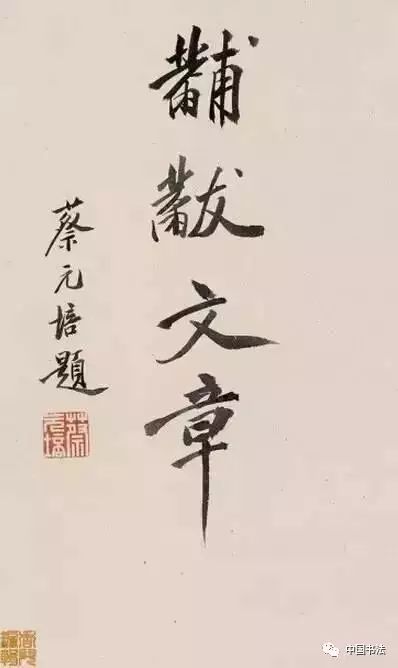 黼黻文章
蔡元培題
蔡元培
中国书法